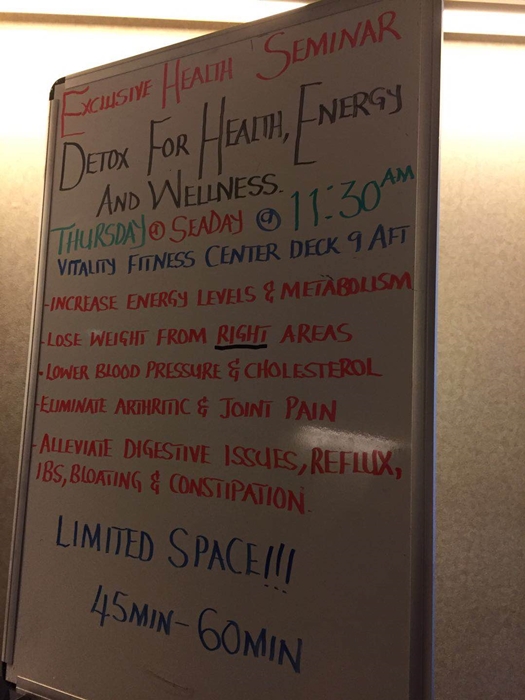 EXCLUSIVE HEALTH SEMINAR
DETOX FOR HEALTH, ENERGY
AND WELLNESS.
THURSDAY @ SEADAY @ 11:30AM
VITALITY FITNESS CENTER DECK 9 AFT
-INCREASE ENERGY LEVELS & METABOLISM
-LOSE WEIGHT FROM RIGHT AREAS
-LOWER BLOOD PRESSURE & CHOLESTEROL
-ELIMINATE ARTHRITIC & JOINT PAIN
-ALLEVIATE DIGESTIVE ISSUES, REFLUX,
IBS, BLOATING & CONSTIPATION.
LIMITED SPACE!!!
45MIN-60MIN